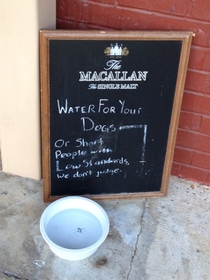 The
MACALLAN
The SINGLE MALT
WATER FOR YOUR
DOGS
Or Short
People with
Low Standards,
we don't judge.